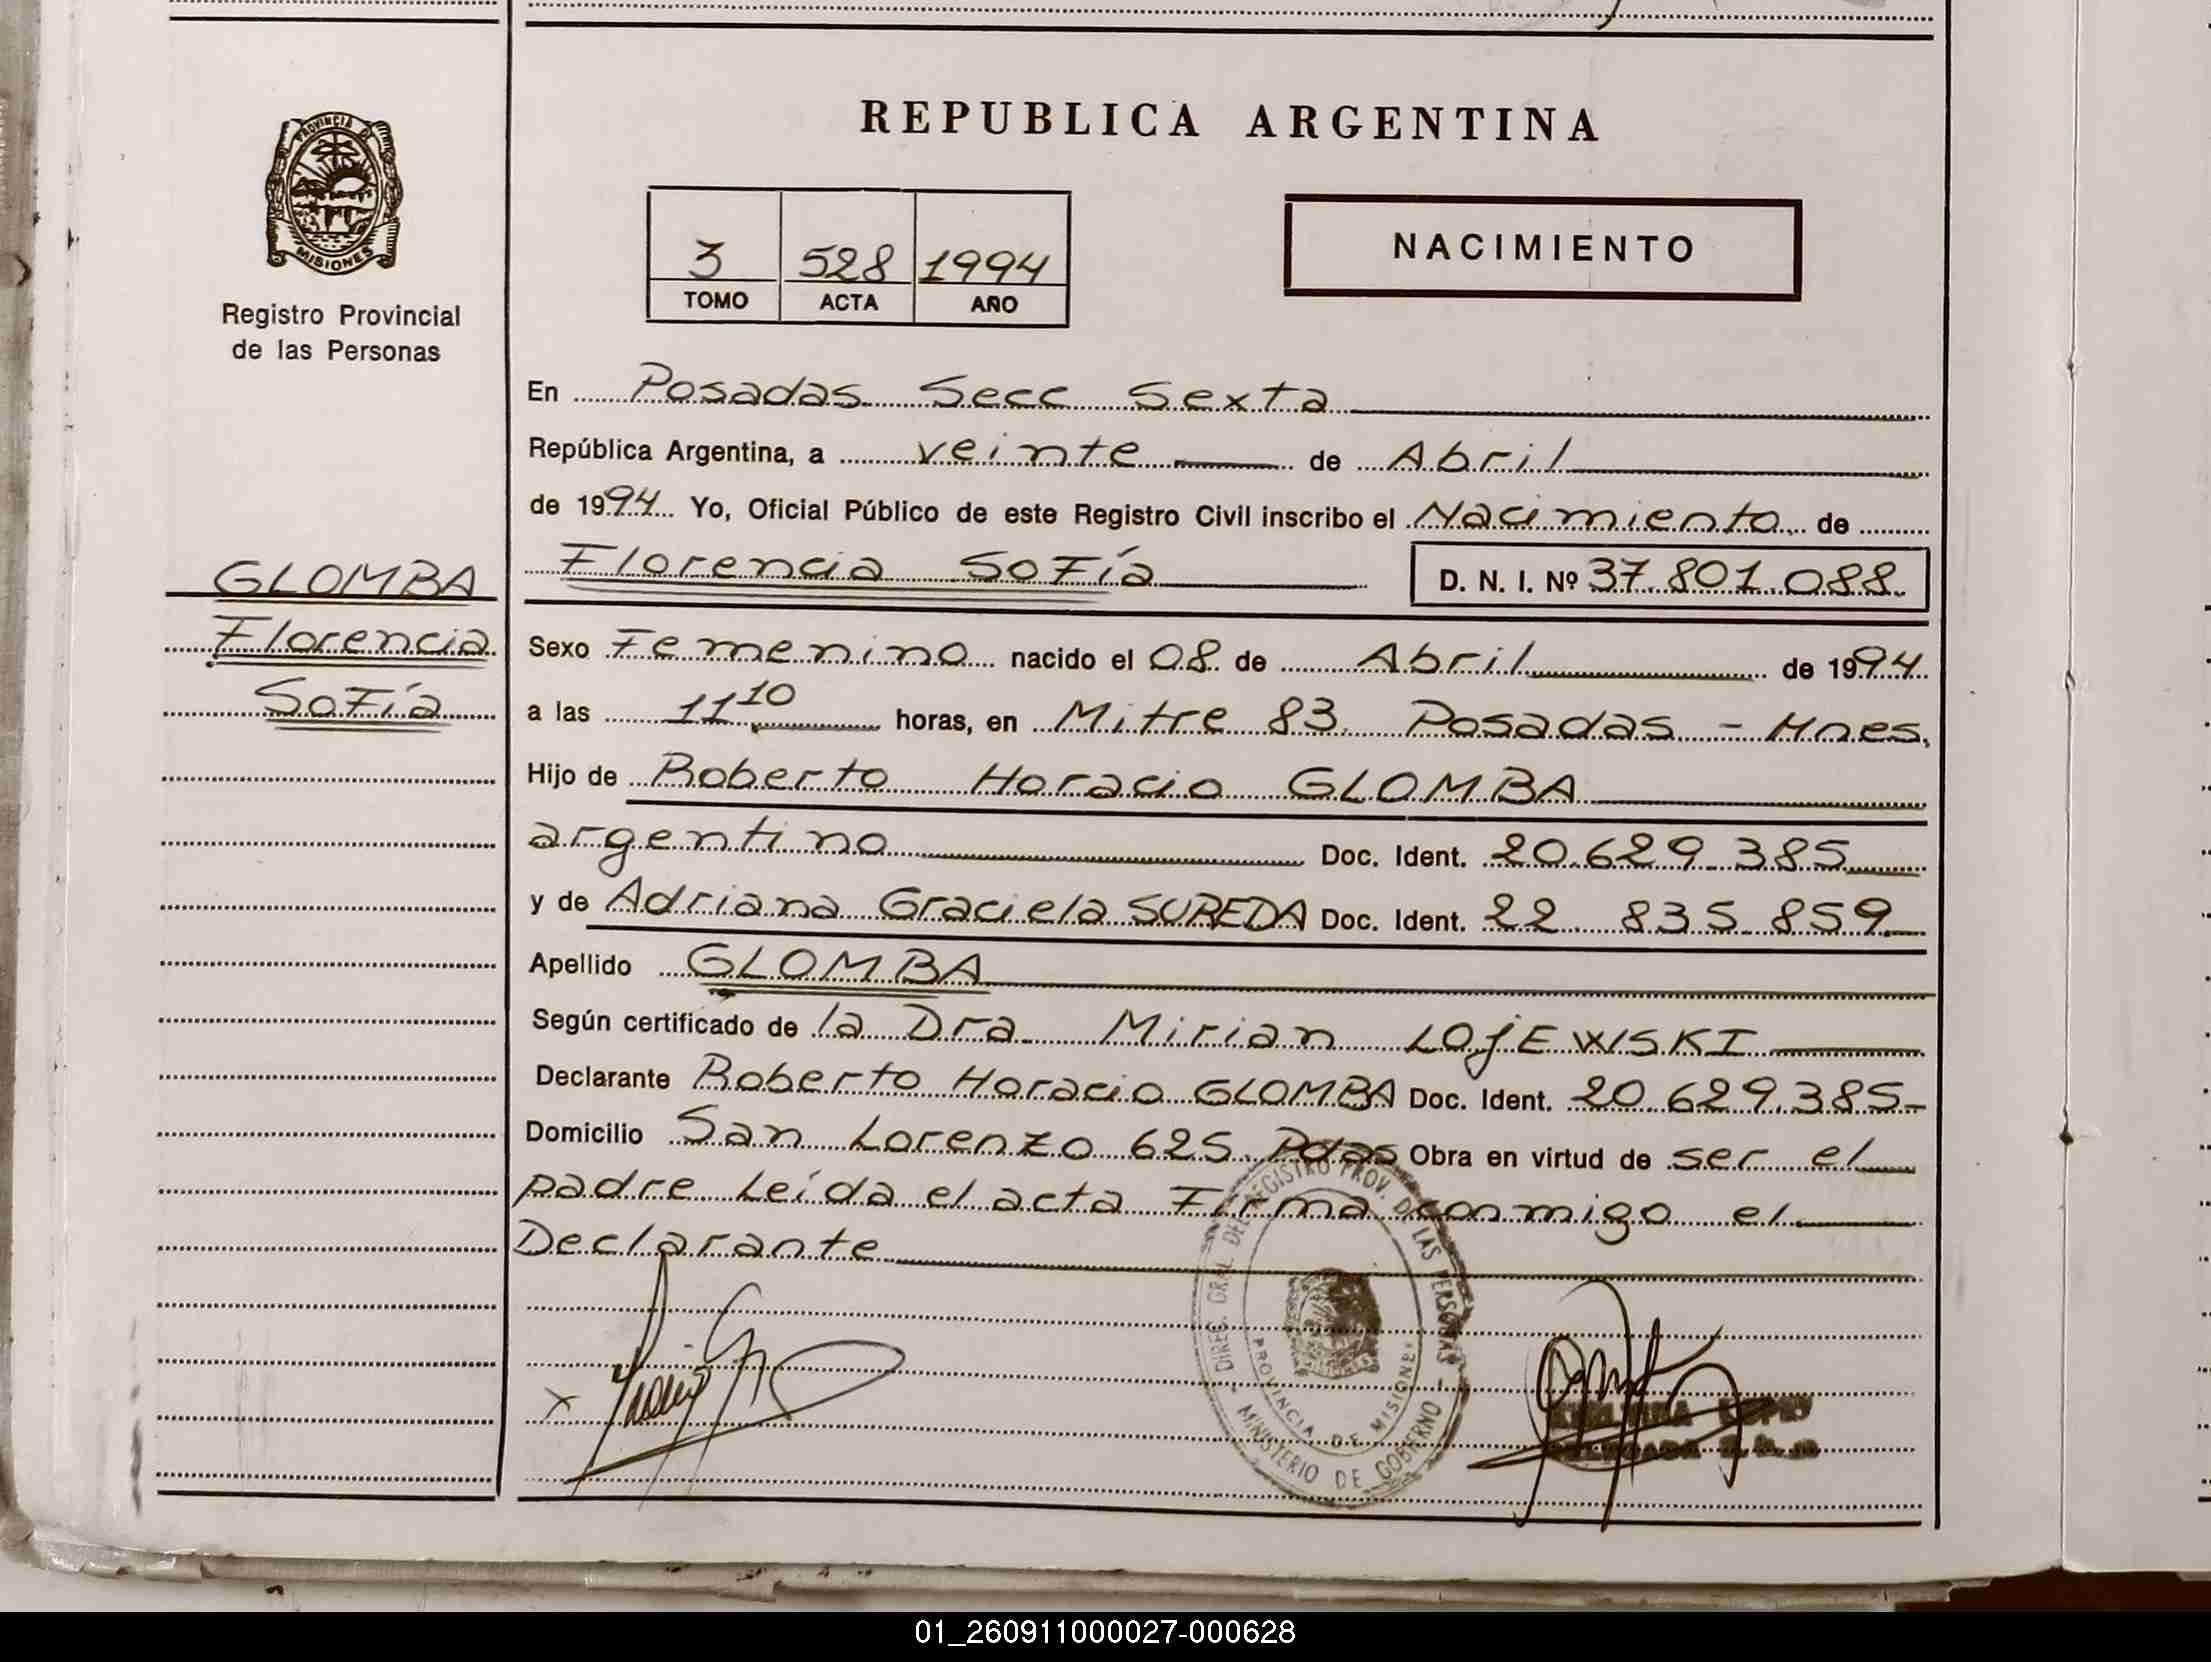 PROVINCIA DE
MISIONES
Registro Provincial
de las Personas
GLOMBA
Florencia
Sofía
REPUBLICA ARGENTINA
3 528 1994
TOMO ACTA AÑO
NACIMIENTO
En Posadas Secc Sexta
República Argentina, a veinte de Abril
de 1994 Yo, Oficial Público de este Registro Civil inscribo el Nacimiento de
Florencia Sofía D. N. I. Nº 37.801.088
Sexo Femenino nacido el 08 de Abril de 1994
a las 11 10 horas, en Mitre 83. Posadas - Mnes.
Hijo de Roberto Horacio GLOMBA
argentino Doc. Ident. 20.629.385
y de Adriana Graciela SUREDA Doc. Ident. 22.835.859
Apellido GLOMBA
Según certificado de la Dra. Mirian LOjEWSKI
Declarante Roberto Horacio GLOMBA Doc. Ident. 20.629.385
Domicilio San Lorenzo 625 Pdas Obra en virtud de ser el
padre Leída el acta Firma conmigo el
Declarante
DIREC. GRAL DEL REGISTRO PROV. DE LAS PERSONAS
PROVINCIA DE MISIONES
MINISTERIO DE GOBIERNO
01_260911000027-000628